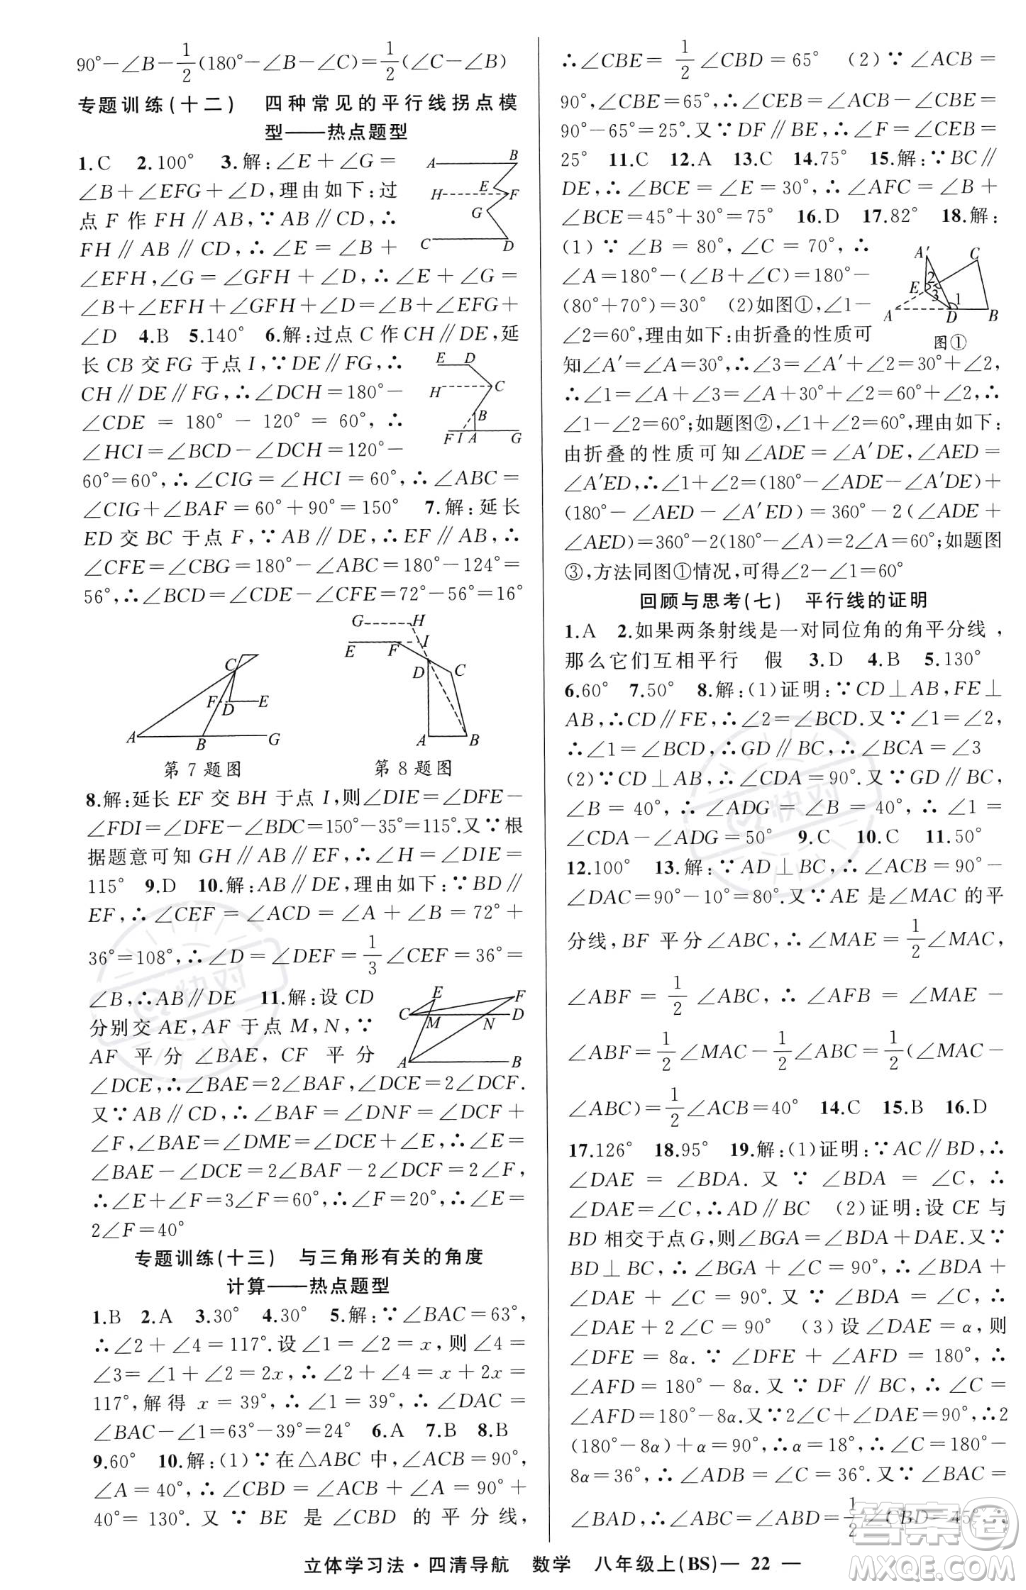 90°−∠B−1/2(180°−∠B−∠C)=1/2(∠C−∠B)
专题训练(十二) 四种常见的平行线拐点模
型——热点题型
1.C 2.100° 3.解:∠E+∠G=
∠B+∠EFG+∠D,理由如下:过
点F作FH∥AB,∵AB∥CD,∴
FH∥AB∥CD,∴∠E=∠B+
∠EFH,∠G=∠GFH+∠D,∴∠E+∠G=
∠B+∠EFH+∠GFH+∠D=∠B+∠EFG+
∠D 4.B 5.140° 6.解:过点C作CH∥DE,延
长CB交FG于点I,∵DE∥FG,∴
CH∥DE∥FG,∴∠DCH=180°−
∠CDE=180°−120°=60°,∴
∠HCI=∠BCD−∠DCH=120°−
60°=60°,∴∠CIG=∠HCI=60°,∴∠ABC=
∠CIG+∠BAF=60°+90°=150° 7.解:延长
ED交BC于点F,∵AB∥DE,∴EF∥AB,∴
∠CFE=∠CBG=180°−∠ABC=180°−124°=
56°,∴∠BCD=∠CDE−∠CFE=72°−56°=16°
A B
H E F
G
C D
D E
H C
B
F I A G
C
F D E
A B G
第7题图
G H
E F I
D C
A B
第8题图
8.解:延长EF交BH于点I,则∠DIE=∠DFE−
∠FDI=∠DFE−∠BDC=150°−35°=115°.又∵根
据题意可知GH∥AB∥EF,∴∠H=∠DIE=
115° 9.D 10.解:AB∥DE,理由如下:∵BD∥
EF,∴∠CEF=∠ACD=∠A+∠B=72°+
36°=108°,∴∠D=∠DEF=1/3∠CEF=36°=
∠B,∴AB∥DE 11.解:设CD
分别交AE,AF于点M,N,∵
AF平分∠BAE,CF平分
∠DCE,∴∠BAE=2∠BAF,∠DCE=2∠DCF.
又∵AB∥CD,∴∠BAF=∠DNF=∠DCF+
∠F,∠BAE=∠DME=∠DCE+∠E,∴∠E=
∠BAE−∠DCE=2(∠BAF−∠DCF)=2∠F,
∴∠E+∠F=3∠F=60°,∴∠F=20°,∴∠E=
2∠F=40°
E F
C M N D
A B
专题训练(十三) 与三角形有关的角度
计算——热点题型
1.B 2.A 3.30° 4.30° 5.解:∵∠BAC=63°,
∴∠2+∠4=117°.设∠1=∠2=x,则∠4=
∠3=∠1+∠2=2x.∵∠2+∠4=x+2x=
117°,解得x=39°,∴∠1=39°,∴∠DAC=
∠BAC−∠1=63°−39°=24° 6.A 7.B 8.B
9.60° 10.解:(1)∵在△ABC中,∠ACB=90°,
∠A=40°,∴∠CBD=∠ACB+∠A=90°+
40°=130°.又∵BE是∠CBD的平分线,
∴∠CBE=1/2∠CBD=65° (2)∵∠ACB=
90°,∠CBE=65°,∴∠CEB=∠ACB−∠CBE=
90°−65°=25°.又∵DF∥BE,∴∠F=∠CEB=
25° 11.C 12.A 13.C 14.75° 15.解:∵BC∥
DE,∴∠BCE=∠E=30°,∴∠AFC=∠B+
∠BCE=45°+30°=75° 16.D 17.82° 18.解:
(1)∵∠B=80°,∠C=70°,∴
∠A=180°−(∠B+∠C)=180°−
(80°+70°)=30° (2)如图①,∠1−
∠2=60°,理由如下:由折叠的性质可
知∠A′=∠A=30°,∴∠3=∠A′+∠2=30°+∠2,
∴∠1=∠A+∠3=∠A+30°+∠2=60°+∠2,∴
∠1−∠2=60°;如题图②,∠1+∠2=60°,理由如下:
由折叠的性质可知∠ADE=∠A′DE,∠AED=
∠A′ED,∴∠1+∠2=(180°−∠ADE−∠A′DE)+
(180°−∠AED−∠A′ED)=360°−2(∠ADE+
∠AED)=360°−2(180°−∠A)=2∠A=60°;如题图
③,方法同图①情况,可得∠2−∠1=60°
A′ C
E 2 3
1
A D B
图①
回顾与思考(七) 平行线的证明
1.A 2.如果两条射线是一对同位角的角平分线,
那么它们互相平行 假 3.D 4.B 5.130°
6.60° 7.50° 8.解:(1)证明:∵CD⊥AB,FE⊥
AB,∴CD∥FE,∴∠2=∠BCD.又∵∠1=∠2,
∴∠1=∠BCD,∴GD∥BC,∴∠BCA=∠3
(2)∵∠BCA=∠3=80°,∠A=60°,∴
∠B=40°,∴∠ADG=∠B=40°,∴∠1=
∠CDA−∠ADG=50° 9.C 10.C 11.50°
12.100° 13.解:∵AD⊥BC,∴∠ACB=90°−
∠DAC=90°−10°=80°.又∵AE是∠MAC的平
分线,BF平分∠ABC,∴∠MAE=1/2∠MAC,
∠ABF=1/2∠ABC,∴∠AFB=∠MAE−
∠ABF=1/2∠MAC−1/2∠ABC=1/2(∠MAC−
∠ABC)=1/2∠ACB=40° 14.C 15.B 16.D
17.126° 18.95° 19.解:(1)证明:∵AC∥BD,∴
∠DAE=∠BDA.又∵∠BDA=∠C,∴
∠DAE=∠C,∴AD∥BC (2)证明:设CE与
BD相交于点G,∴∠BGA=∠BDA+∠DAE.∵
BD⊥BC,∴∠BGA+∠C=90°,∴∠BDA+
∠DAE+∠C=90°.又∵∠BDA=∠C,∴
∠DAE+2∠C=90° (3)设∠DAE=α,则
∠DFE=8α.∵∠DFE+∠AFD=180°,∴
∠AFD=180°−8α.又∵DF∥BC,∴∠C=
∠AFD=180°−8α.又∵2∠C+∠DAE=90°,∴2
(180°−8α)+α=90°,∴α=18°,∴∠C=180°−
8α=36°,∴∠BDA=∠C=36°.又∵∠BAC=
∠BAD,∴∠ABC=∠ABD=1/2∠CBD=45°,六
立体学习法·四清导航 数学 八年级上(BS)— 22 —